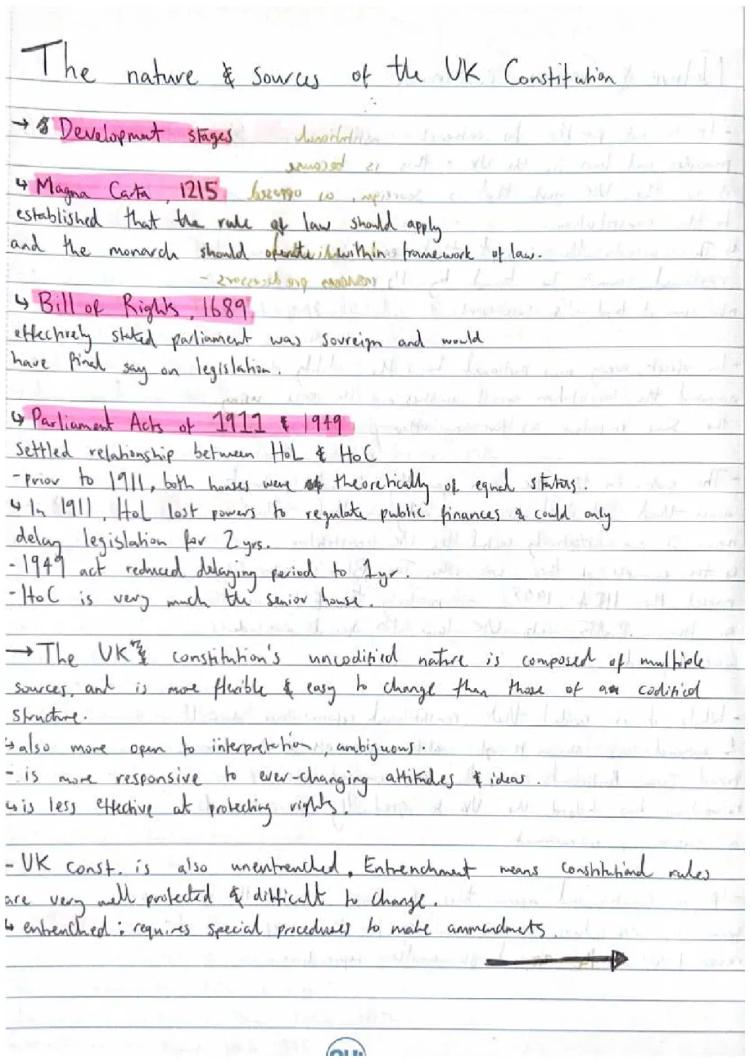 The nature & sources of the UK Constitution
→ Development stages
↳ Magna Carta, 1215
established that the rule of law should apply
and the monarch should operate within framework of law.
↳ Bill of Rights, 1689
effectively stated parliament was sovreign and would
have final say on legislation.
↳ Parliament Acts of 1911 & 1949
settled relationship between HoL & HoC
- prior to 1911, both houses were theoretically of equal status.
↳ In 1911, HoL lost powers to regulate public finances & could only
delay legislation for 2 yrs.
- 1949 act reduced delaying period to 1 yr.
- HoC is very much the senior house.
→ The UK constitution's uncodified nature is composed of multiple
sources, and is more flexible & easy to change than those of a codified
structure.
↳ also more open to interpretation, ambiguous.
- is more responsive to ever-changing attitudes & ideas.
↳ is less effective at protecting rights.
- UK const. is also unentrenched. Entrenchment means constitutional rules
are very well protected & difficult to change.
↳ entrenched : requires special procedures to make ammendments.